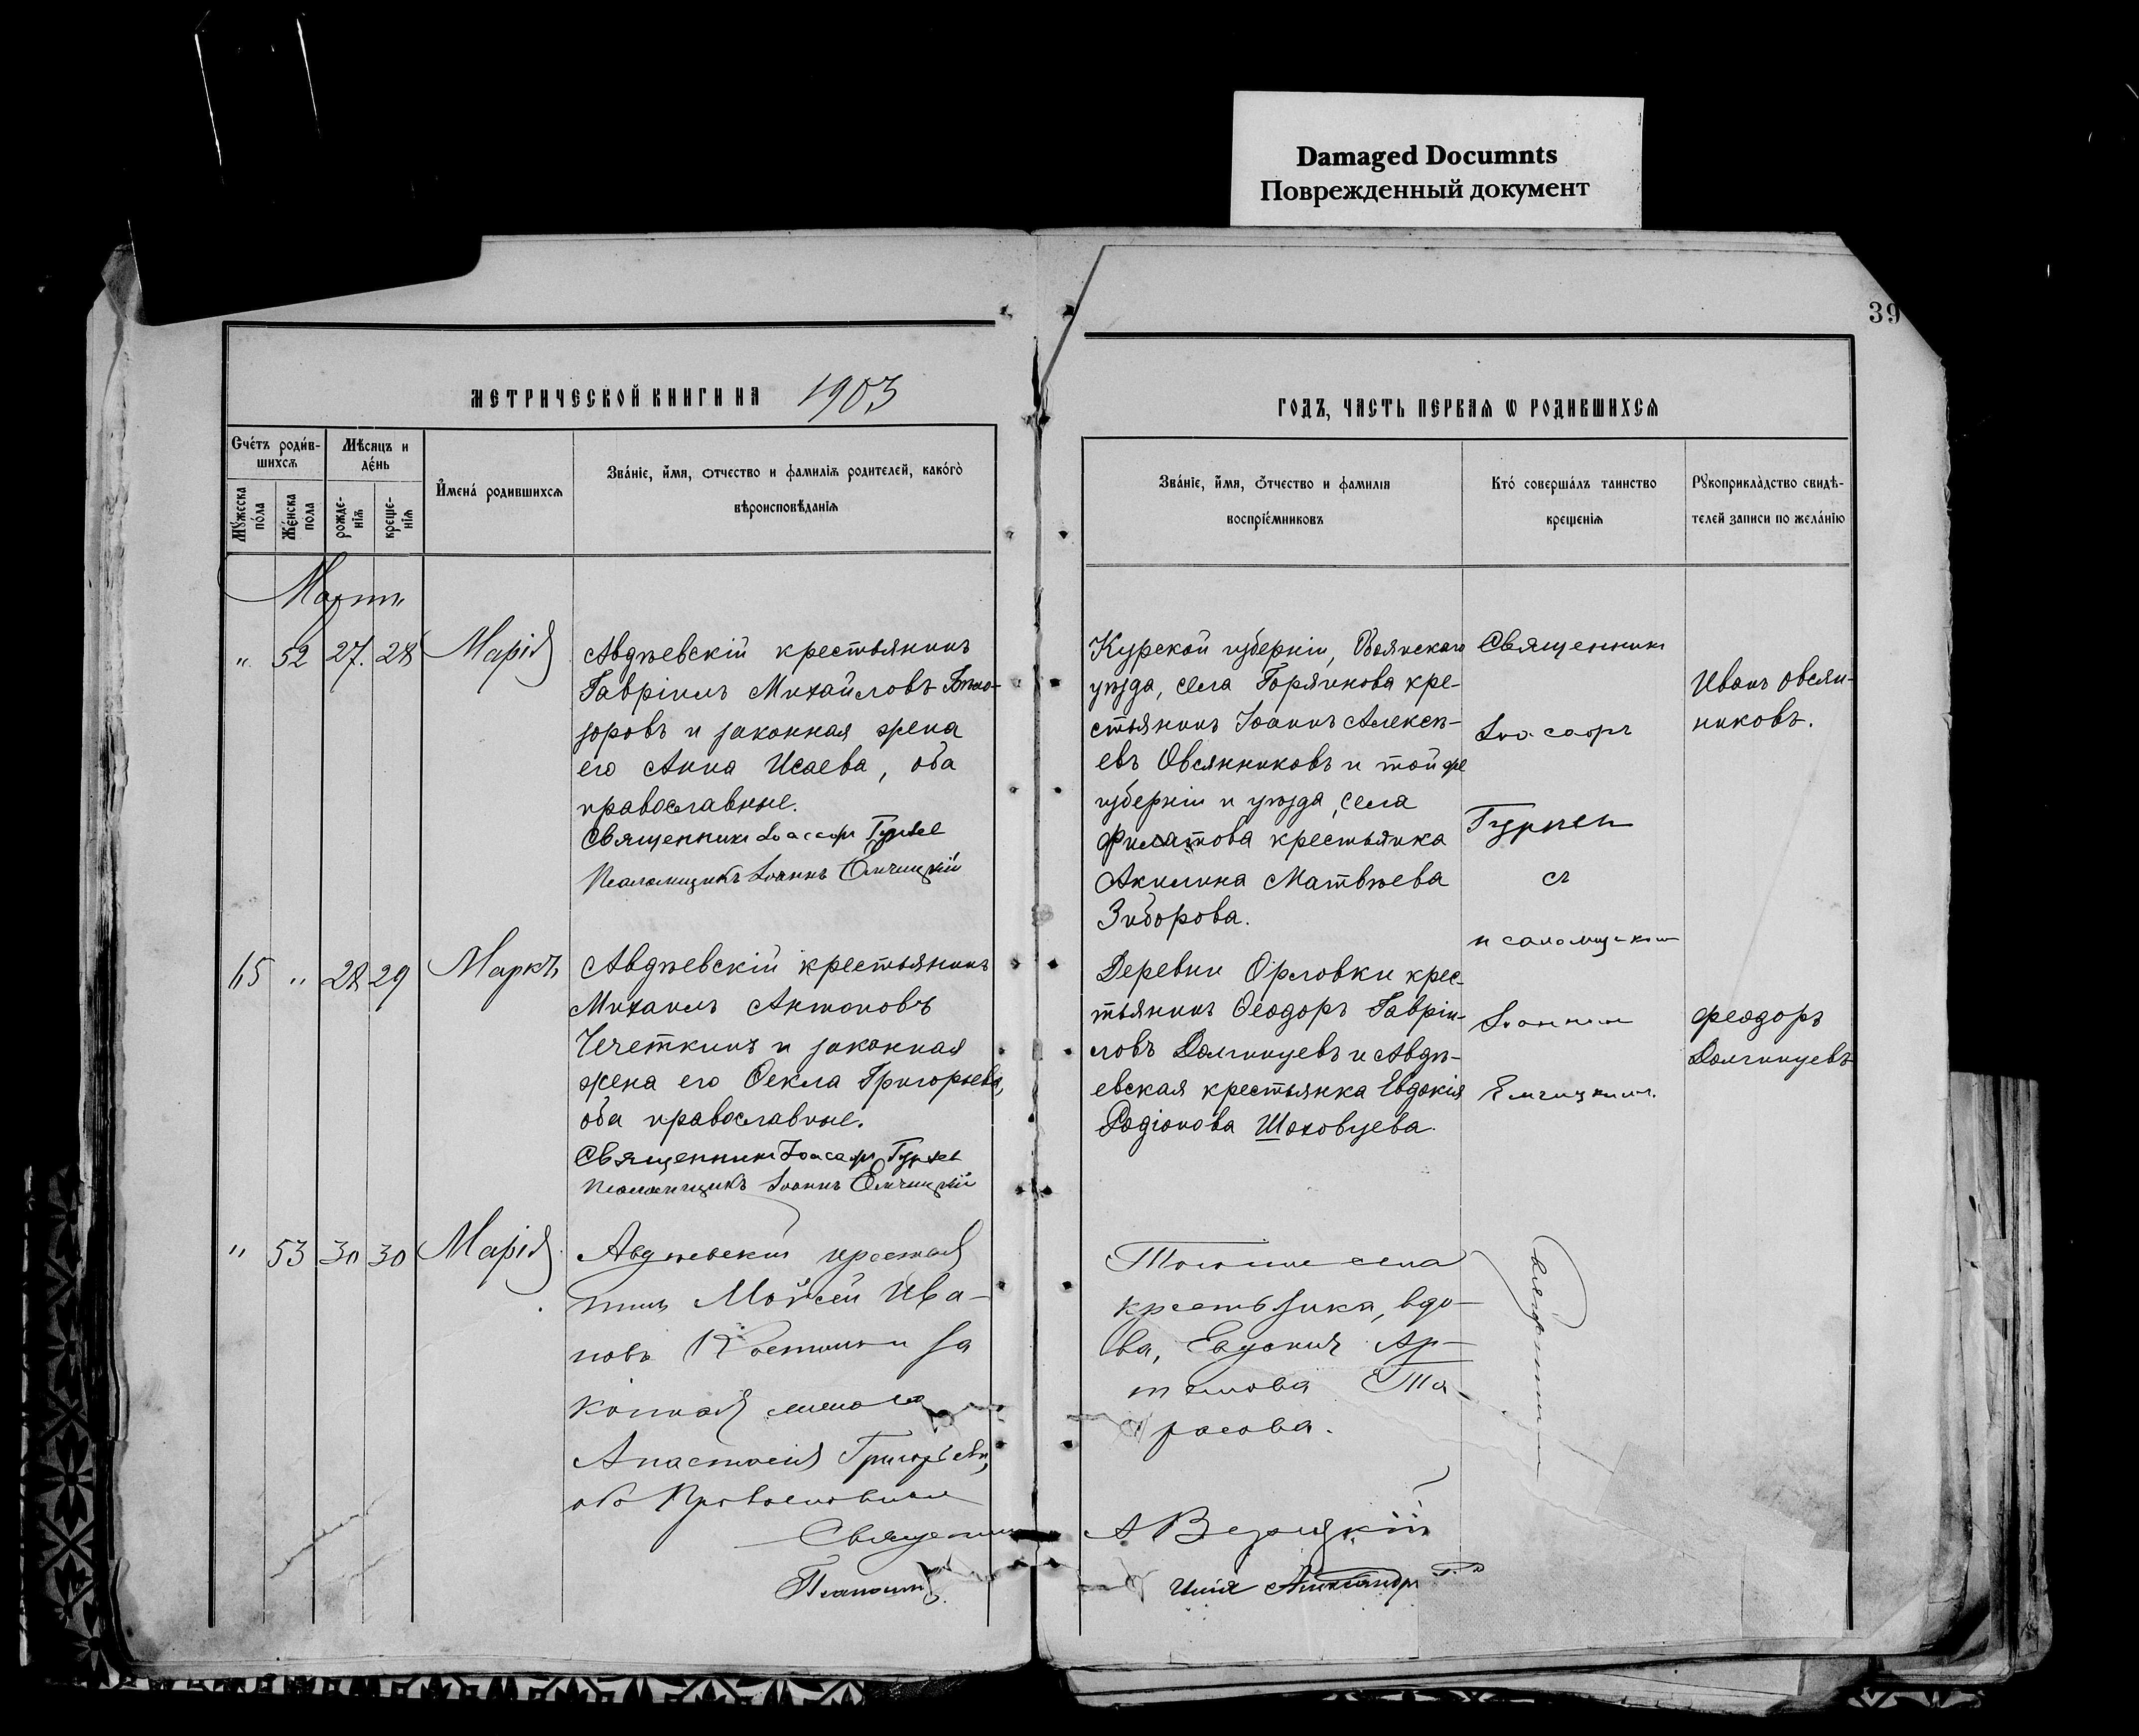 Damaged Documnts
Поврежденный документ
39
МЕТРИЧЕСКОЙ КНИГИ НА 1903
ГОДЪ, ЧАСТЬ ПЕРВАѦ Ѡ РОДИВШИХСѦ
Счетъ родив-
шихсѧ
Мѣсяцъ и
день
Мужеска
пола
Женска
пола
рожде-
нїѧ
креще-
нїѧ
Имена родившихсѧ
Званїе, имя, отчество и фамилїѧ родителей, какого
вѣроисповѣданїѧ
Званїе, имя, отчество и фамилїѧ
воспрїемниковъ
Кто совершалъ таинство
крещенїѧ
Рукоприкладство свидѣ-
телей записи по желанїю
Мартъ
" 52 27. 28 Марія
Авдѣевскій крестьянинъ
Гавріилъ Михайловъ
и законная жена
его Анна Исаева, оба
православные.
Священникъ Іоасафъ
Псаломщикъ Іоаннъ
Курской губерніи,
уѣзда, села Горяинова кре-
стьянинъ Іоаннъ Алексѣ-
евъ Овсянниковъ и той же
губерніи и уѣзда, села
Филатова крестьянка
Акилина Матвѣева
Зиборова.
Священникъ
Іоасафъ
съ
псаломщикомъ
Іоанномъ
Иванъ Овсян-
никовъ.
65 " 28 29 Маркъ
Авдѣевскій крестьянинъ
Михаилъ Антоновъ
Чечеткинъ и законная
жена его Ѳекла Григорьева,
оба православные.
Священникъ Іоасафъ
Псаломщикъ Іоаннъ
Деревни Орловки крес-
тьянинъ Ѳеодоръ Гавріи-
ловъ Долгинцевъ и Авдѣ-
евская крестьянка Евдокія
Родіонова Шоховцева.
Феодоръ
Долгинцевъ
" 53 30 30 Марія
Авдѣевскій крестья
нинъ Моѵсей Ива-
новъ за
конная жена его
Анастасія Григорьева,
оба Православные
Священникъ
Псаломщ
села
крестьянка, вдо-
ва, Евдокія Ар-
темова Та-
расова.
Илія Александр